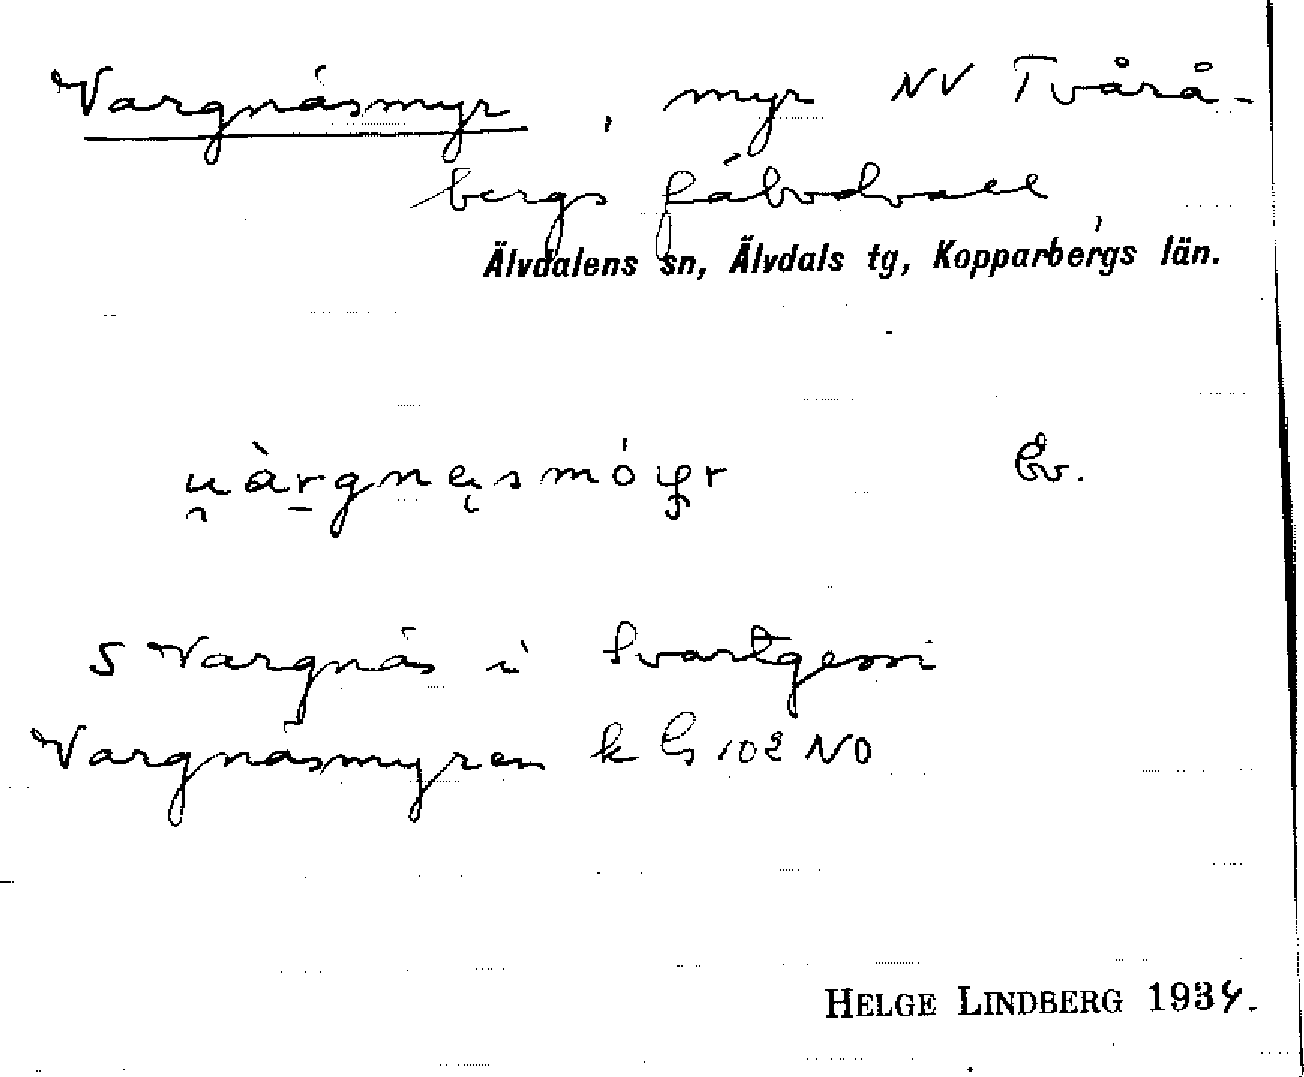 Vargnäsmyr, myr NV Tvårå-
bergs fäbodvall
Älvdalens sn, Älvdals tg, Kopparbergs län.
Äv.
S Vargnäs i Svartgessi
Vargnäsmyren k G 102 NO
HELGE LINDBERG 1934.